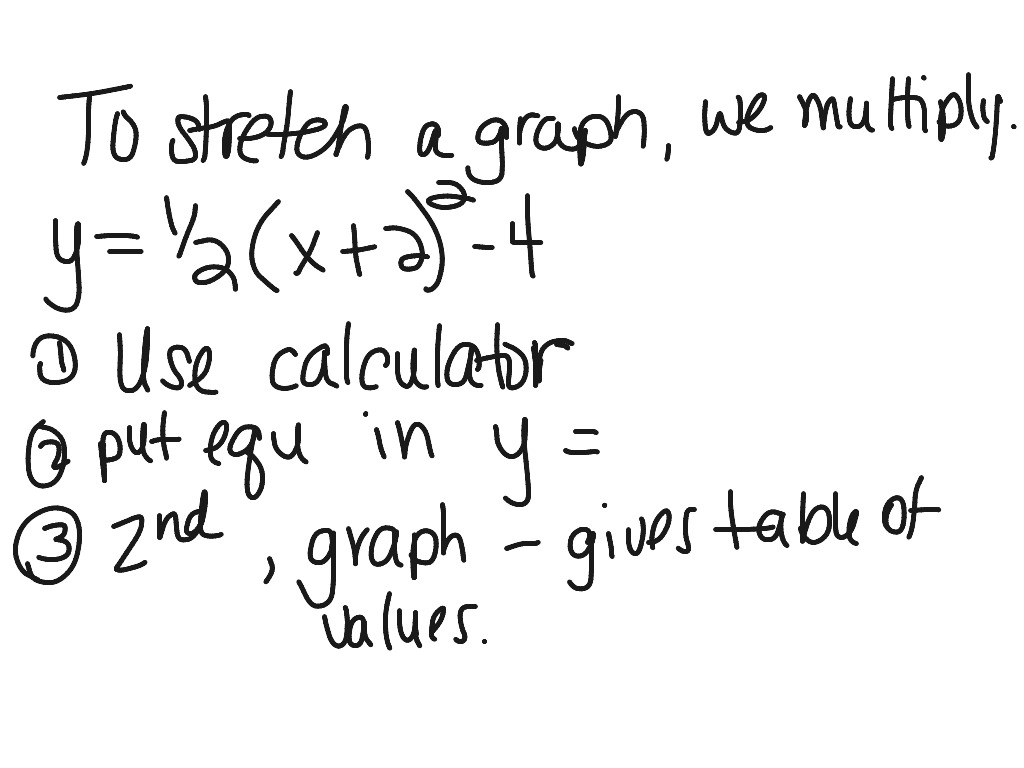 To stretch a graph, we multiply.
y = 1/2 (x+2)² - 4
① Use calculator
② put equ in y =
③ 2nd, graph - gives table of
values.